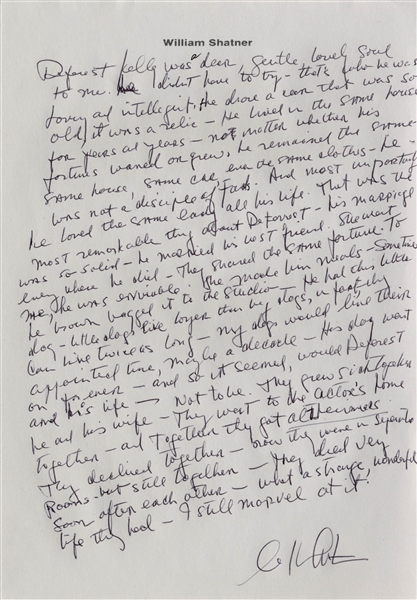 William Shatner
Deforest Kelly was a dear, gentle lovely soul
to me. I didn't have to try - that's who he was
loving and intelligent. He drove a car that was so
old it was a relic - He lived in the same house
for years and years - no matter whether his
fortunes waned or grew, he remained the same -
same house, same car, even the same clothes - he
was not a disciple of fads. And most importantly
he loved the same lady all his life. That was the
most remarkable thing about Deforest - his marriage
was so solid - he married his best friend. She went
every where he did - They shared the same fortune. To
me, he was enviable. She made him meals - Sometimes
he brown bagged it to the studio - He had this little
dog - little dogs live longer than big dogs, in fact they
can live twice as long - my dogs would live their
appointed time, maybe a decade - His dog went
on for ever - and so it seemed, would Deforest
and his life - Not to be. They grew sick together
he and his wife - They went to the actor's home
together - and together they got
They declined together - now they were in separate
Rooms - but still together - They died very
soon after each other - what a strange, wonderful
life they had - I still marvel at it.